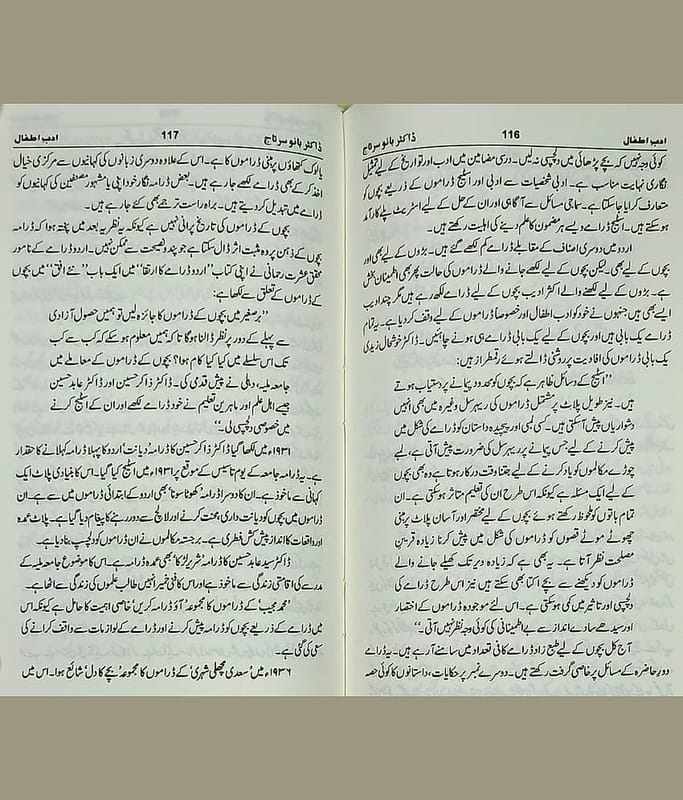 ادب اطفال 116 ڈاکٹر بانو سرتاج
کوئی وجہ نہیں کہ بچے پڑھائی میں دلچسپی نہ لیں۔ درسی مضامین میں ادب اور تواریخ کے لیے تمثیل
نگاری نہایت مناسب ہے۔ ادبی شخصیات سے ادبی اور اسٹیج ڈراموں کے ذریعے بچوں کو
متعارف کرایا جاسکتا ہے۔ سماجی مسائل سے آگاہی اور ان کے حل کے لیے اسٹریٹ پلے کارآمد
ہوسکتے ہیں۔ اسٹیج ڈرامے ویسے ہر مضمون کا علم دینے کی اہلیت رکھتے ہیں۔
اردو میں دوسری اصناف کے مقابلے ڈرامے کم لکھے گئے ہیں۔ بڑوں کے لیے بھی اور
بچوں کے لیے بھی۔ لیکن بچوں کے لیے لکھے جانے والے ڈراموں کی حالت پھر بھی اطمینان بخش
ہے۔ بڑوں کے لیے لکھنے والے اکثر ادیب بچوں کے لیے ڈرامے لکھ رہے ہیں مگر چند ادیب
ایسے بھی ہیں جنہوں نے خود کو ادب اطفال اور خصوصاً ڈراموں کے لیے وقف کردیا ہے۔ یہ تمام
ڈرامے یک بابی ہیں اور بچوں کے لیے یک بابی ڈرامے ہی ہونے چاہئیں۔ ڈاکٹر خوشحال زیدی
یک بابی ڈراموں کی افادیت پر روشنی ڈالتے ہوئے رقمطراز ہیں:
”اسٹیج کے وسائل ظاہر ہے کہ بچوں کو محدود پیمانے پر دستیاب ہوتے
ہیں۔ نیز طویل پلاٹ پر مشتمل ڈراموں کی ریہرسل وغیرہ میں بھی انہیں
دشواریاں پیش آسکتی ہیں۔ کسی لمبی اور پیچیدہ داستان کو ڈرامے کی شکل میں
پیش کرنے کے لیے جس پیمانے پر ریہرسل کی ضرورت پیش آتی ہے، لمبے
چوڑے مکالموں کو یاد کرنے کے لیے جتنا وقت درکار ہوتا ہے وہ بھی بچوں
کے لیے ایک مسئلہ ہے کیونکہ اس طرح ان کی تعلیم متاثر ہوسکتی ہے۔ ان
تمام باتوں کو ملحوظ رکھتے ہوئے بچوں کے لیے مختصر اور آسان پلاٹ پر مبنی
چھوٹے موٹے قصوں کو ڈراموں کی شکل میں پیش کرنا زیادہ قرین
مصلحت نظر آتا ہے۔ یہ بھی ہے کہ زیادہ دیر تک کھیلے جانے والے
ڈراموں کو دیکھنے سے بچے اکتا بھی سکتے ہیں نیز اس طرح ڈرامے کی
دلچسپی اور تاثیر میں کمی ہوسکتی ہے۔ اس لئے موجودہ ڈراموں کے اختصار
اور سیدھے سادے انداز سے بے اطمینانی کی کوئی وجہ نظر نہیں آتی۔“
آج کل بچوں کے لئے طبع زاد ڈرامے کافی تعداد میں سامنے آرہے ہیں۔ یہ ڈرامے
دور حاضرہ کے مسائل پر خاصی گرفت رکھتے ہیں۔ دوسرے نمبر پر حکایات، داستانوں کا کوئی حصہ
ادب اطفال 117 ڈاکٹر بانو سرتاج
یا لوک کتھاؤں پر مبنی ڈراموں کا ہے۔ اس کے علاوہ دوسری زبانوں کی کہانیوں سے مرکزی خیال
اخذ کرکے بھی ڈرامے لکھے جارہے ہیں۔ بعض ڈرامہ نگار خود اپنی یا مشہور مصنفین کی کہانیوں کو
ڈرامے میں تبدیل کردیتے ہیں۔ براہ راست ترجمے بھی کئے جارہے ہیں۔
بچوں کے ڈراموں کی تاریخ پرانی نہیں ہے کیونکہ یہ نظریہ بعد میں پختہ ہوا کہ ڈرامہ
بچوں کے ذہن پر وہ مثبت اثر ڈال سکتا ہے جو پند و نصیحت سے ممکن نہیں۔ اردو ڈرامے کے نامور
محقق عشرت رحمانی نے اپنی کتاب ”اردو ڈرامے کا ارتقا“ میں ایک باب ”نئے افق“ میں بچوں
کے ڈراموں کے تعلق سے لکھا ہے:
”برصغیر میں بچوں کے ڈراموں کا جائزہ لیں تو ہمیں حصول آزادی
سے پہلے کے دور پر نظر ڈالنا ہوگا تاکہ ہمیں معلوم ہوسکے کہ کب سے کب
تک اس سلسلے میں کیا کیا کام ہوا؟ بچوں کے ڈراموں کے معاملے میں
جامعہ ملیہ، دہلی نے پیش قدمی کی۔ ڈاکٹر ذاکر حسین اور ڈاکٹر عابد حسین
جیسے اہل علم اور ماہرین تعلیم نے خود ڈرامے لکھے اور ان کے اسٹیج کرنے
میں خصوصی دلچسپی لی۔“
۱۹۳۱ء میں لکھا گیا ڈاکٹر ذاکر حسین کا ڈرامہ دیانت اردو کا پہلا ڈرامہ کہلانے کا حقدار
ہے۔ یہ ڈرامہ جامعہ کے یوم تاسیس کے موقع پر ۱۹۳۱ء میں اسٹیج کیا گیا۔ اس کا بنیادی پلاٹ ایک
کہانی سے ماخوذ ہے۔ ان کا دوسرا ڈرامہ ’کھوٹا سونا‘ بھی اردو کے ابتدائی ڈراموں میں سے ہے۔ ان
ڈراموں میں بچوں کو دیانت داری، محنت کرنے اور لالچ سے دور رہنے کا پیغام دیا گیا ہے۔ پلاٹ عمدہ
اور واقعات کا انداز پیش کش فطری ہے۔ برجستہ مکالموں نے ان ڈراموں کو دلچسپ بنادیا ہے۔
ڈاکٹر سید عابد حسین کا ڈرامہ ’شریر لڑکا‘ بھی عمدہ ڈرامہ ہے۔ اس کا موضوع جامعہ ملیہ کے
مدرسے کی اقامتی زندگی سے ماخوذ ہے اور اس کا فنی خمیر انہیں طالب علموں کی زندگی سے اٹھا ہے۔
’محمد مجیب‘ کے ڈراموں کا مجموعہ ’آؤ ڈرامہ کریں‘ خاصی اہمیت کا حامل ہے کیونکہ اس
میں ڈرامے کے ذریعے بچوں کو ڈرامہ پیش کرنے اور ڈرامے کے لوازمات سے واقف کرانے کی
سعی کی گئی ہے۔
۱۹۳۶ء میں ’سعدی مچھلی شہری‘ کے ڈراموں کا مجموعہ ’بچے کا دل‘ شائع ہوا۔ اس میں